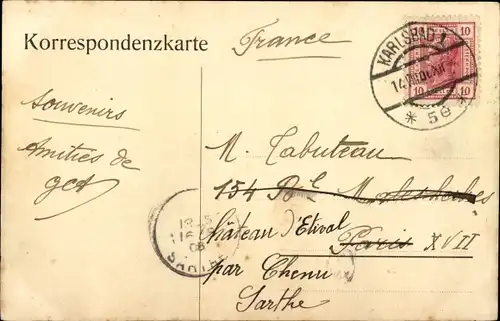 Korrespondenzkarte
France
10 10
10 10
KARLSBAD 1
* 5e *
Souvenirs
Amitiés de
M. Tabuteau
154 Bd Malesherbes
Château d'Etival
Paris XVII
par Chenu
Sarthe
SARTHE